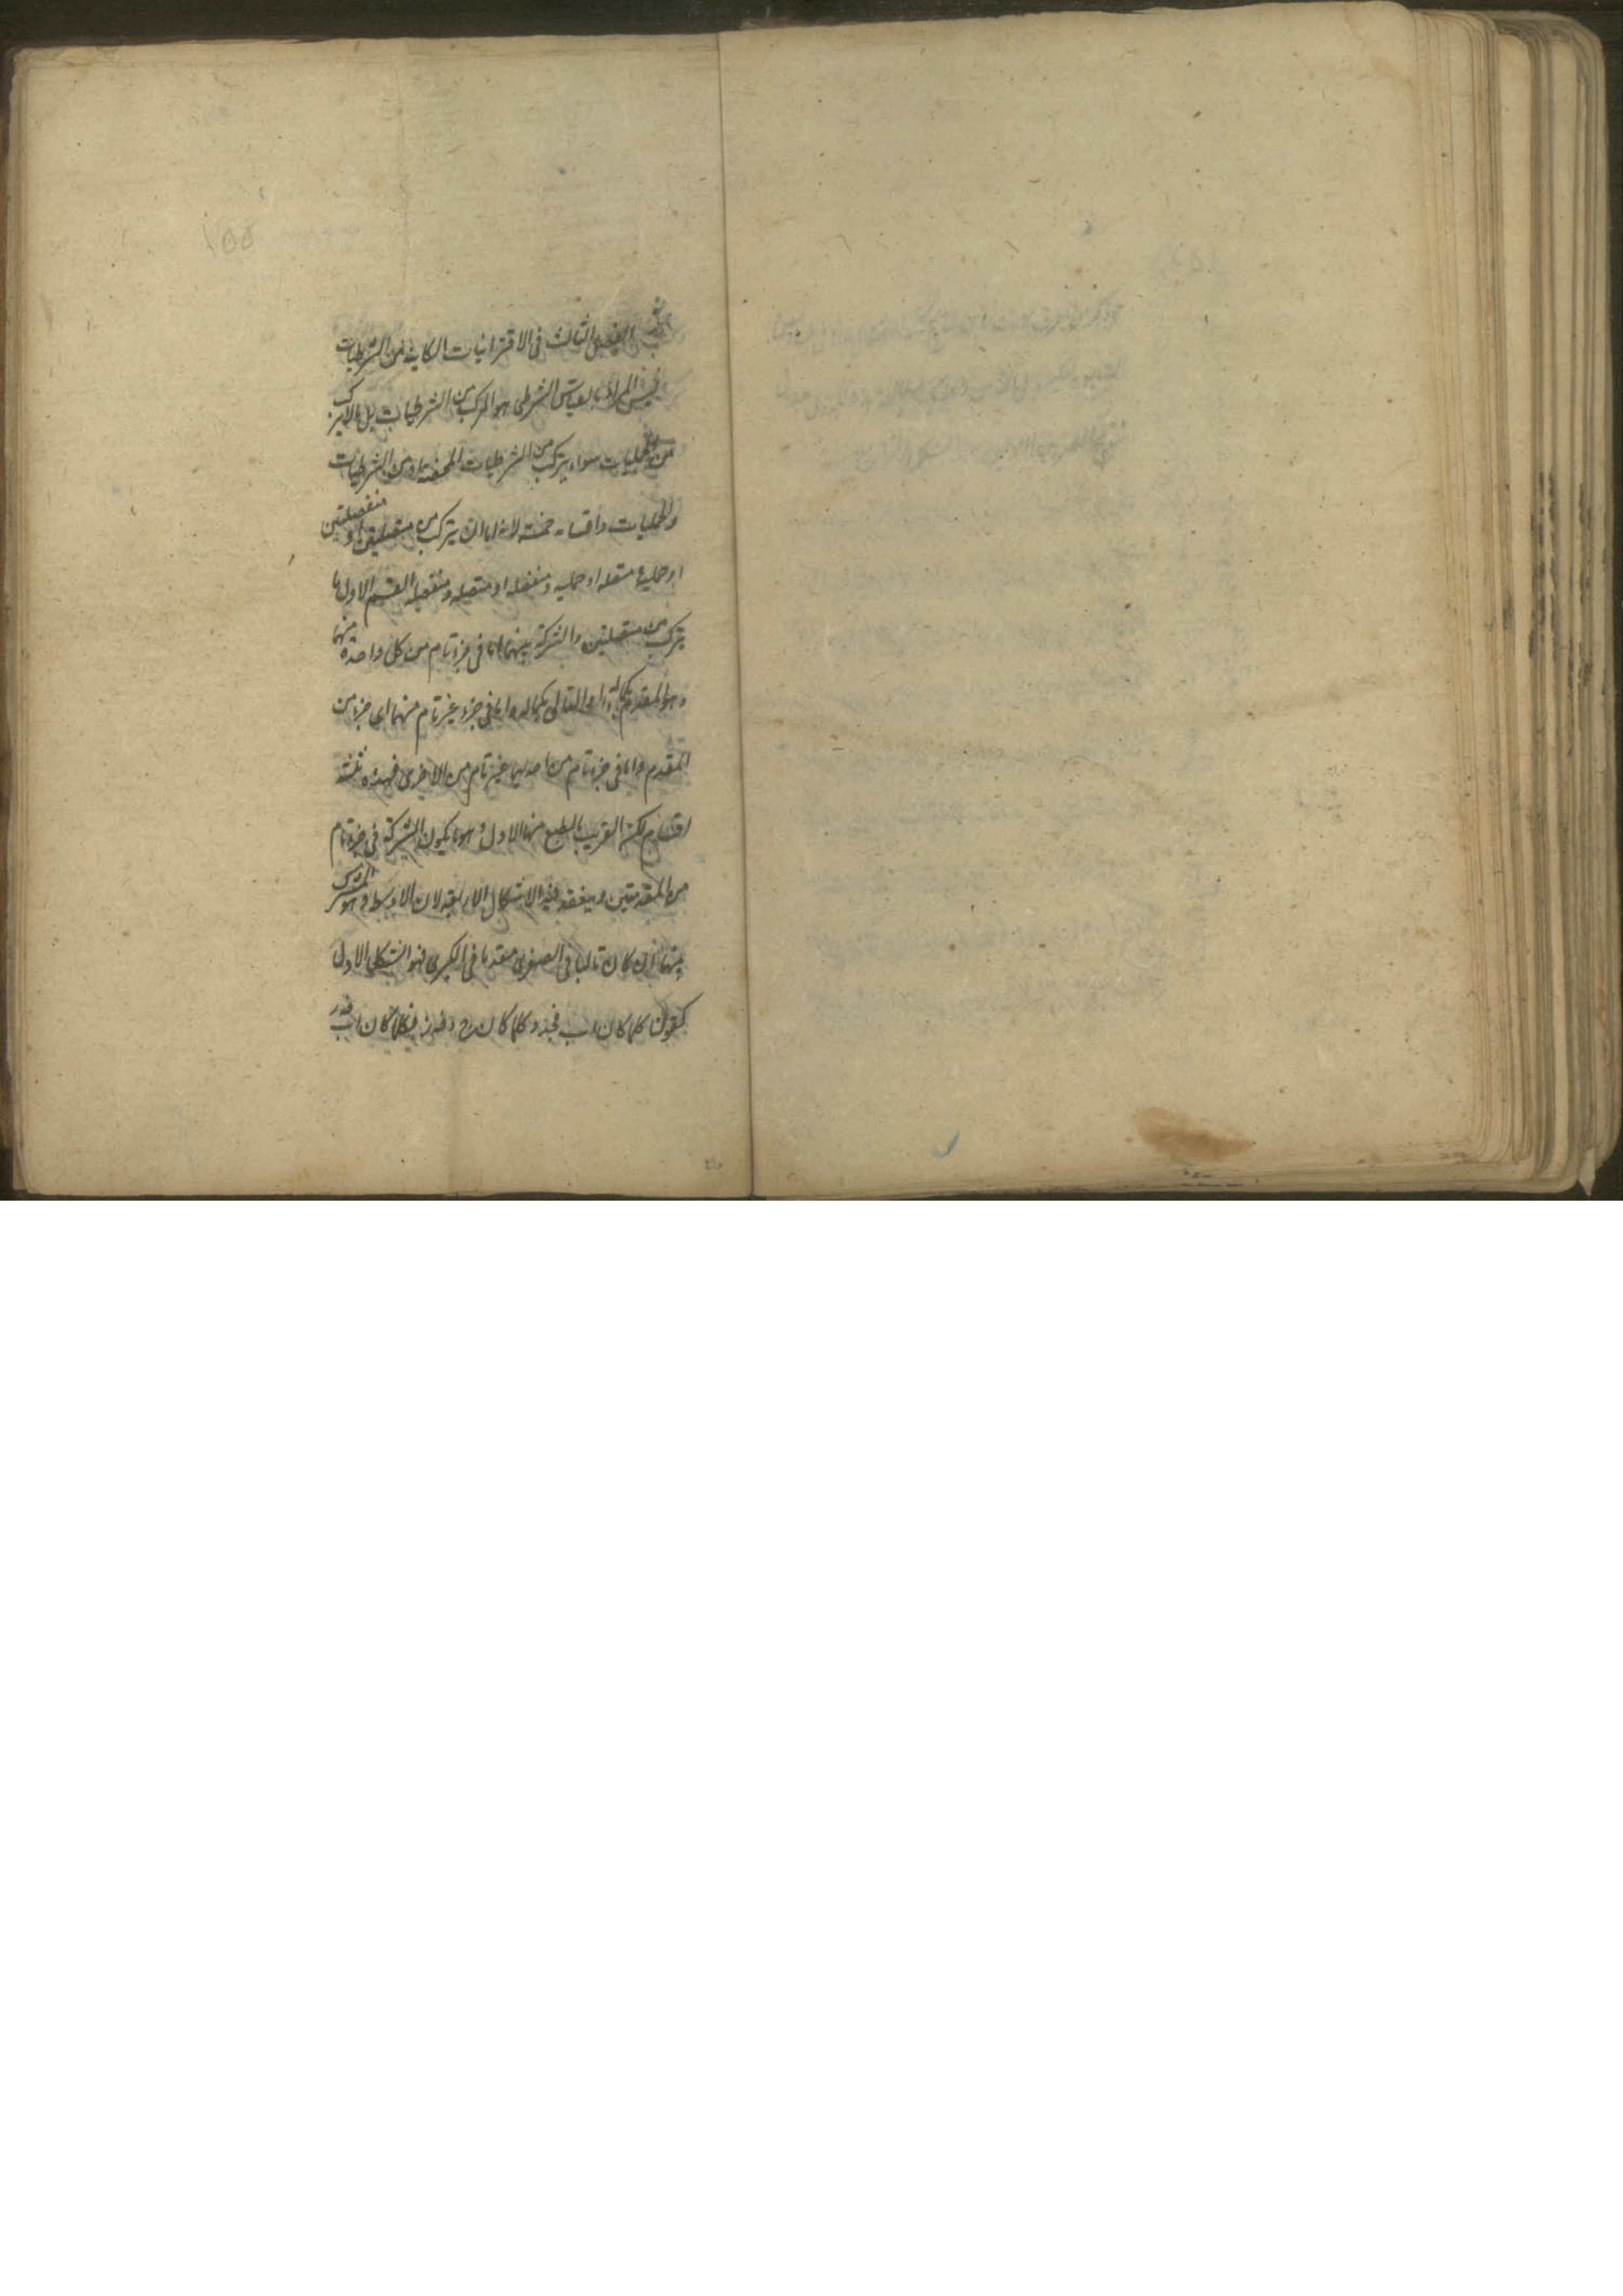 ١٥٥
الفصل الثالث فى الاقترانيات الكاينة من الشرطيات
ليس المراد بالقياس الشرطى هو المركب من الشرطيات بل مالايتركب
من الحمليات سواء يتركب من الشرطيات المحضة او من الشرطيات
والحمليات واقسامه خمسة لانه اما ان يتركب من متصلتين او منفصلتين
او حملية متصله او حمليه ومنفصله او متصله ومنفصله القسم الاول ما
يتركب من متصلتين والشركة بينهما اما فى جزء تام من كل واحدة منهما
وهو المقدم بكماله واما التالى بكماله واما فى جزء غير تام منهما اى جزء من
المقدم واما فى جزء تام من احديهما غير تام من الاخرى فهذه ثلثة
اقسام لكن القريب بالطبع منها الاول وهو ما يكون الشركة فى جزء تام
من المقدمتين وينعقد فيه الاشكال الاربعة لان الاوسط وهو المشترك
بينهما ان كان تاليا فى الصغرى مقدما فى الكبرى فهو الشكل الاول
كقولنا كلما كان اب فجد وكلما كان ج د فه ز فكلما كان اب فه ز